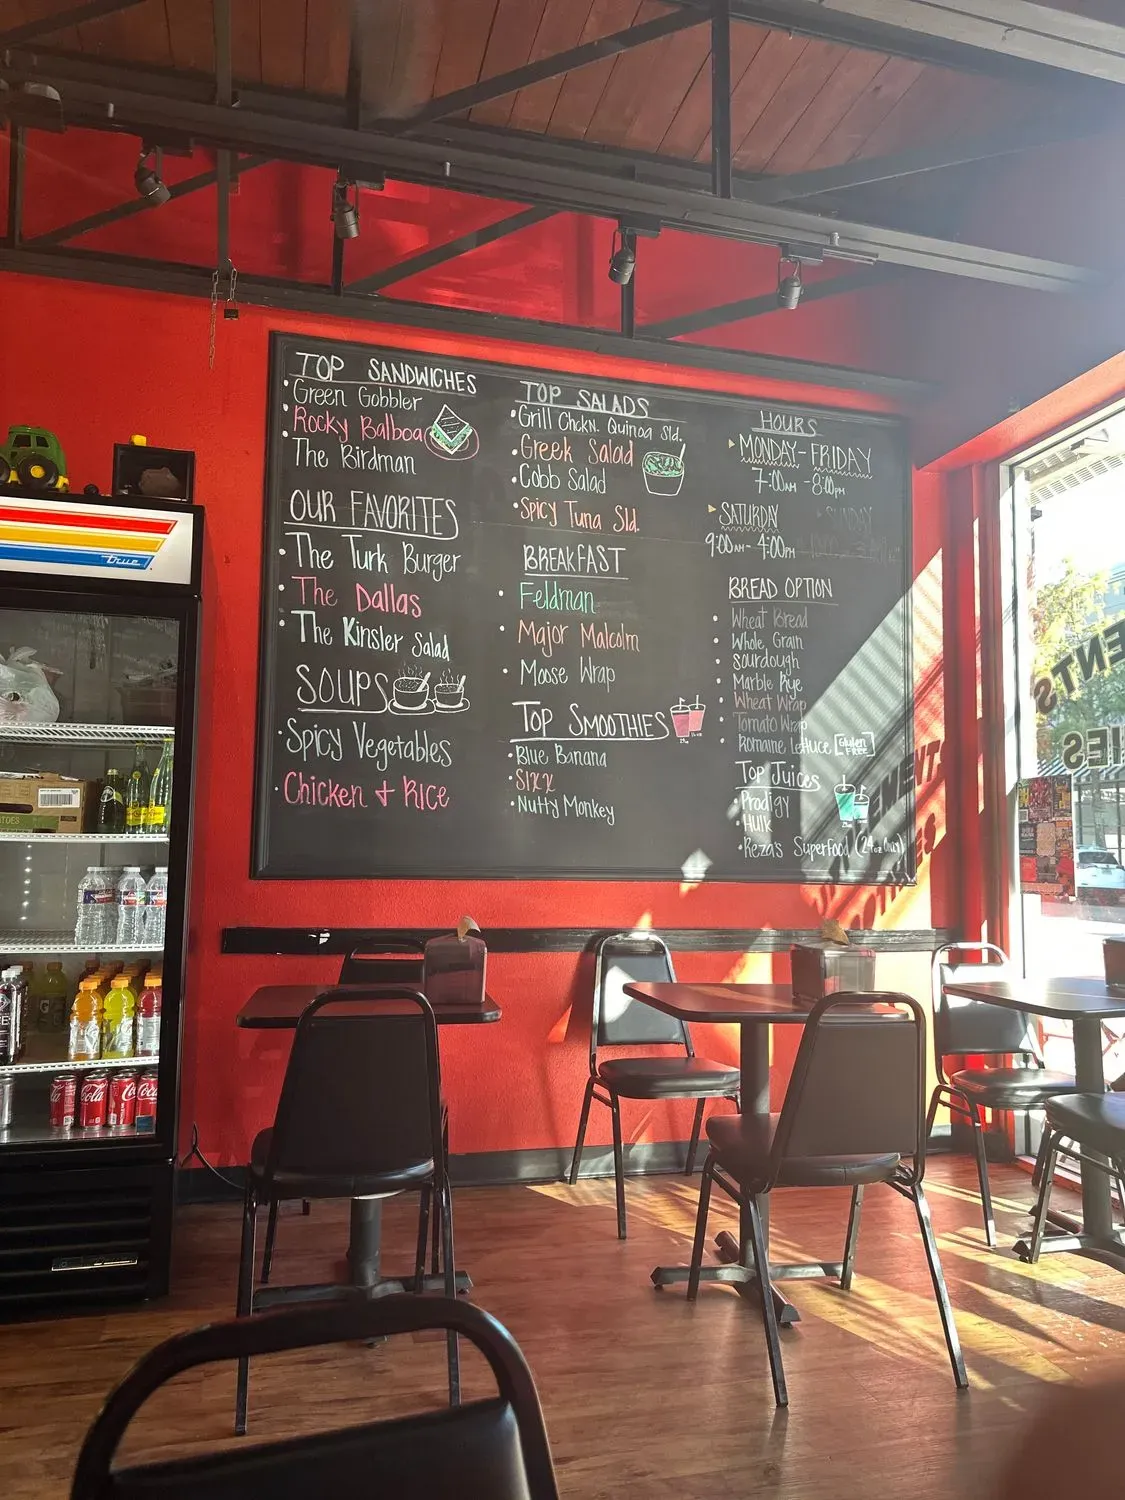 TOP SANDWICHES
Green Gobbler
Rocky Balboa
The Birdman
OUR FAVORITES
The Turk Burger
The Dallas
The Kinsler Salad
SOUPS
Spicy Vegetables
Chicken + Rice
TOP SALADS
Grill Chckn. Quinoa Sld.
Greek Salad
Cobb Salad
Spicy Tuna Sld.
BREAKFAST
Feldman
Major Malcolm
Moose Wrap
TOP SMOOTHIES
Blue Banana
SIXX
Nutty Monkey
HOURS
MONDAY-FRIDAY
7:00AM - 8:00PM
SATURDAY
SUNDAY
9:00AM - 4:00PM
BREAD OPTION
Wheat Bread
Whole Grain
Sourdough
Marble Rye
Wheat Wrap
Tomato Wrap
Romaine Lettuce Gluten FREE
TOP JUICES
Prodigy
HULK
Reza's Superfood (24oz Only)
True
Coca-Cola